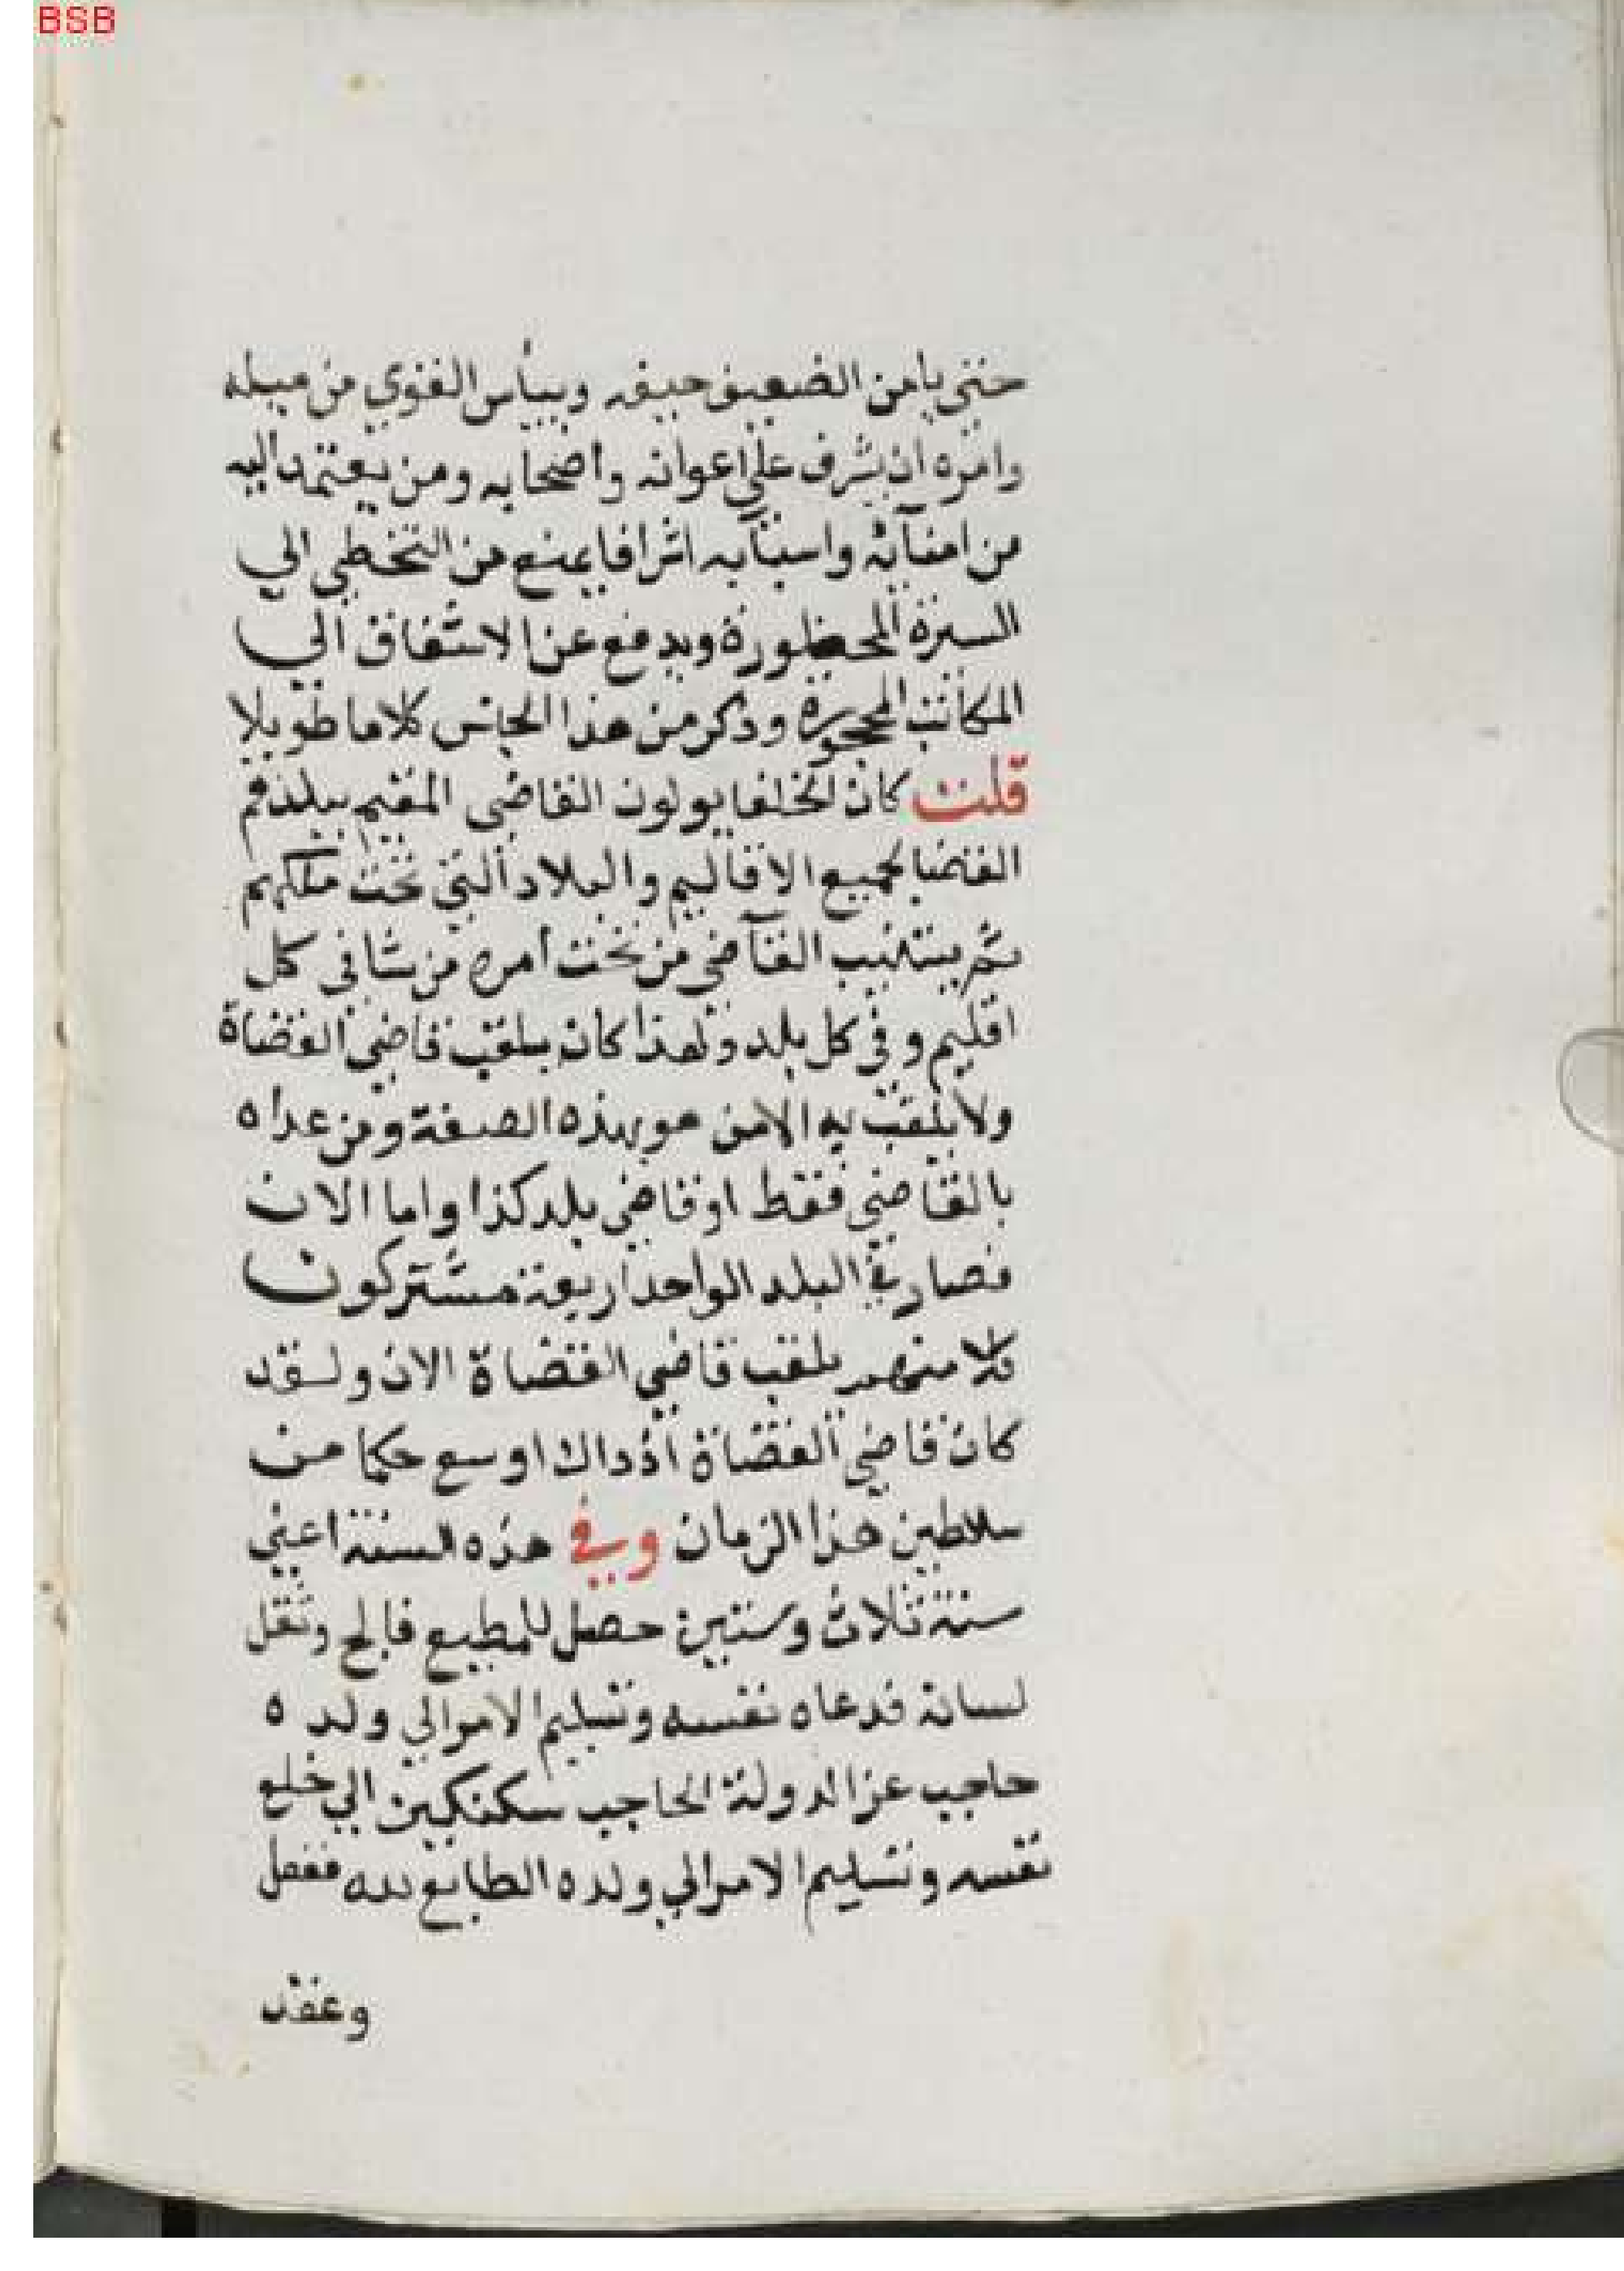 BSB
حتى يامن الضعيف حيفه وييأس القوي من ميله
وامره ان يشرف على اعوانه واصحابه ومن يعتمد اليه
من امنآئه واسبآبه اشرافا يمنع من التخطي الي
السيرة المحظورة ويدفع عن الاشفاق الي
المكانب المحجوره وذكر من هذا الجنس كلاما طويلا
قلت كان الخلفا يولون القاضي المقيم ببلدهم
القضا بجميع الاقاليم والبلاد التي تحت ملكهم
ثم يستنيب القآضي من تحت أمره من شا في كل
اقليم وفي كل بلد ولهذا كان يلقب قاضي القضاة
ولا يلقب به الا من هو بهذه الصفة ومن عداه
بالقاضي فقط او قاضي بلد كذا واما الان
فصار في البلد الواحد اربعة مشتركون
كلا منهم يلقب قاضي القضاة الان ولقد
كان قاضي القضاة اذ داك اوسع حكما من
سلاطين هذا الزمان وفي هذه السنة اعني
سنة ثلاث وستين حصل للمطيع فالج وثقل
لسانه فدعاه نفسه وتسليم الامر الي ولده
حاجب عز الدولة الحاجب سكتكين الي خلع
نفسه وتسليم الامر الي ولده الطايع لله ففعل
وعقد